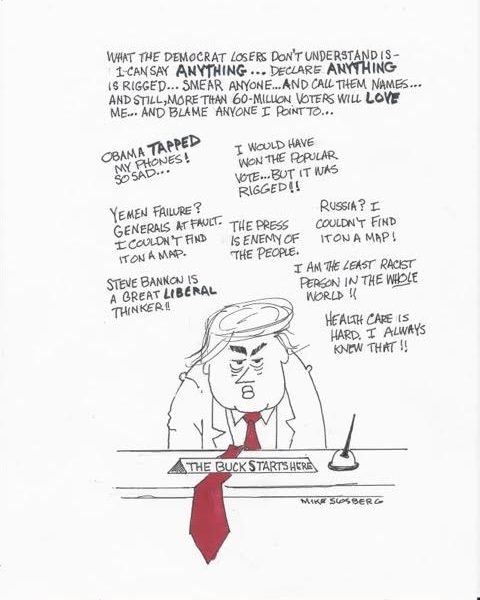 WHAT THE DEMOCRAT LOSERS DON'T UNDERSTAND IS-
I CAN SAY ANYTHING... DECLARE ANYTHING
IS RIGGED... SMEAR ANYONE... AND CALL THEM NAMES...
AND STILL, MORE THAN 60-MILLION VOTERS WILL LOVE
ME... AND BLAME ANYONE I POINT TO...
OBAMA TAPPED
MY PHONES!
SO SAD...
I WOULD HAVE
WON THE POPULAR
VOTE... BUT IT WAS
RIGGED!!
YEMEN FAILURE?
GENERALS AT FAULT.
I COULDN'T FIND
IT ON A MAP.
THE PRESS
IS ENEMY OF
THE PEOPLE.
RUSSIA? I
COULDN'T FIND
IT ON A MAP!
STEVE BANNON IS
A GREAT LIBERAL
THINKER!!
I AM THE LEAST RACIST
PERSON IN THE WHOLE
WORLD!!
HEALTH CARE IS
HARD. I ALWAYS
KNEW THAT!!
THE BUCK STARTS HERE
MIKE SLOSBERG